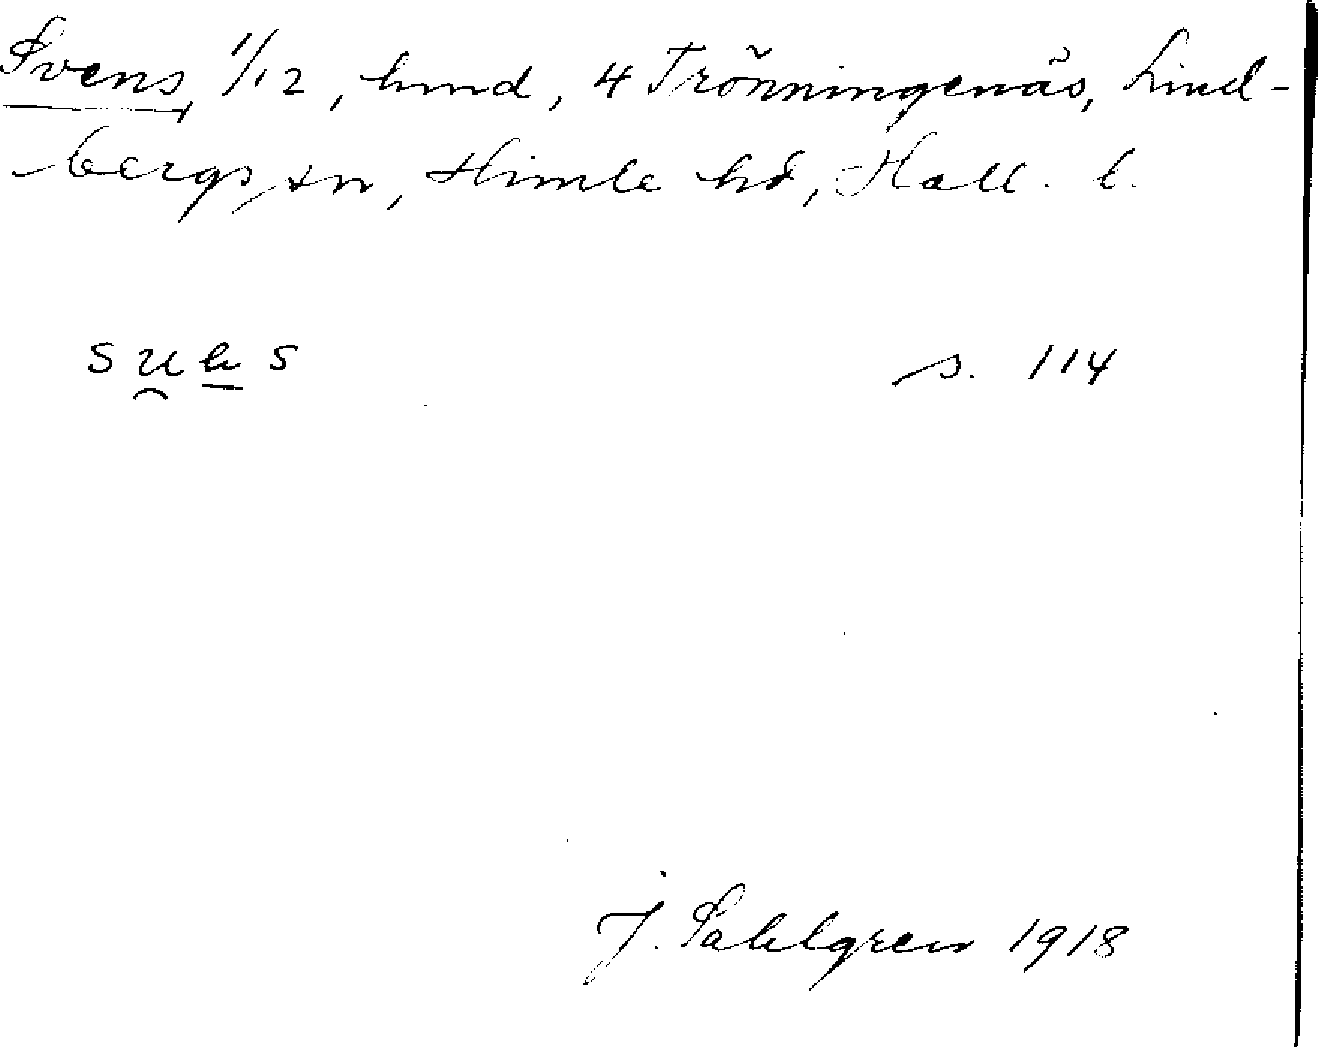 Svens, 1/12, hmd, 4 Trönningenäs, Lind-
bergs sn, Himle hd, Hall. l.
s. 114
J. Sahlgren 1918